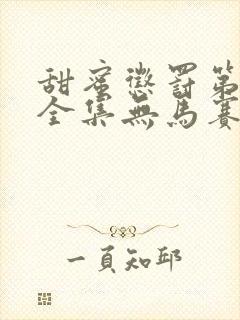 甜蜜懲罰第
全集無馬賽
一頁知邱